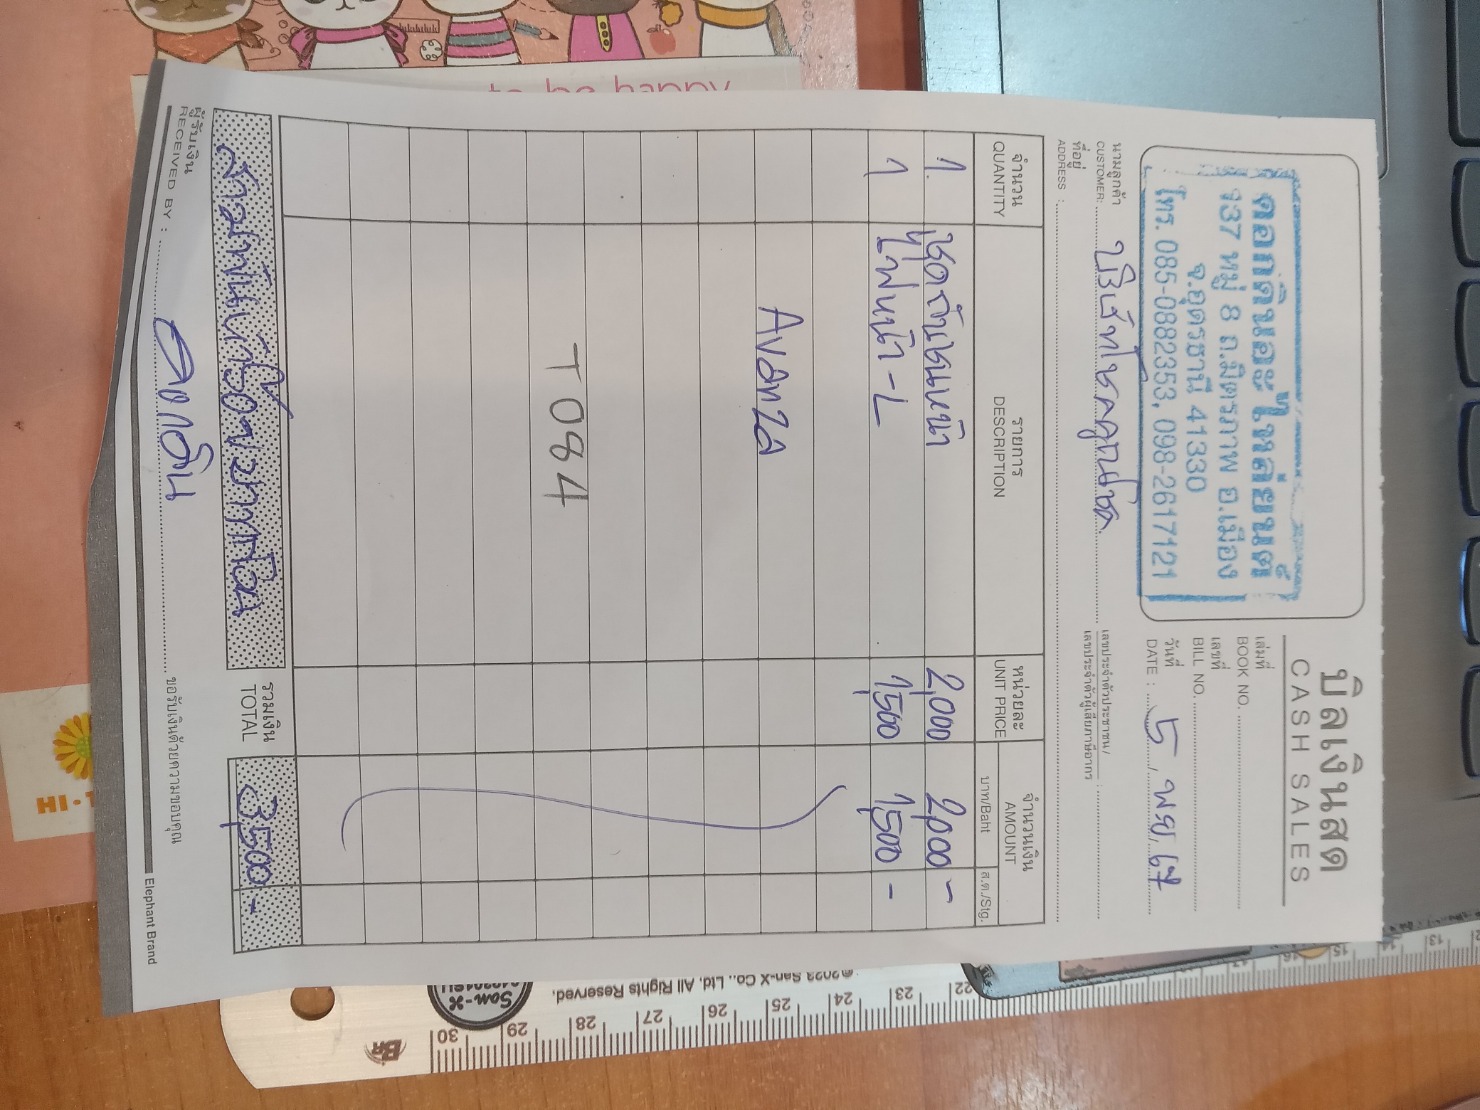 บิลเงินสด
CASH SALES
ดอกดินอะไหล่ยนต์
137 หมู่ 8 ถ.มิตรภาพ อ.เมือง
จ.อุดรธานี 41330
โทร. 085-0882353, 098-2617121
เล่มที่
BOOK NO.
เลขที่
BILL NO.
วันที่
DATE : 5 / พย / 67
นามลูกค้า
CUSTOMER: บริษัทโชคคูณโชค
เลขประจำตัวประชาชน/
เลขประจำตัวผู้เสียภาษีอากร :
ที่อยู่
ADDRESS :
จำนวน QUANTITY รายการ DESCRIPTION หน่วยละ UNIT PRICE จำนวนเงิน AMOUNT
บาท/Baht ส.ต./Stg.
1 ชุดกันชนหน้า 2,000 2,000 -
1 ไฟหน้า - L 1,500 1,500 -
Avanza
T 084
สามพันห้าร้อยบาทถ้วน รวมเงิน TOTAL 3,500 -
ผู้รับเงิน
RECEIVED BY : ดอกดิน ขอรับเงินด้วยความขอบคุณ
Elephant Brand
to be happy
HI-T
©2023 San-X Co., Ltd. All Rights Reserved.
San-X
30 29 28 27 26 25 24 23 22
16 15 14 13